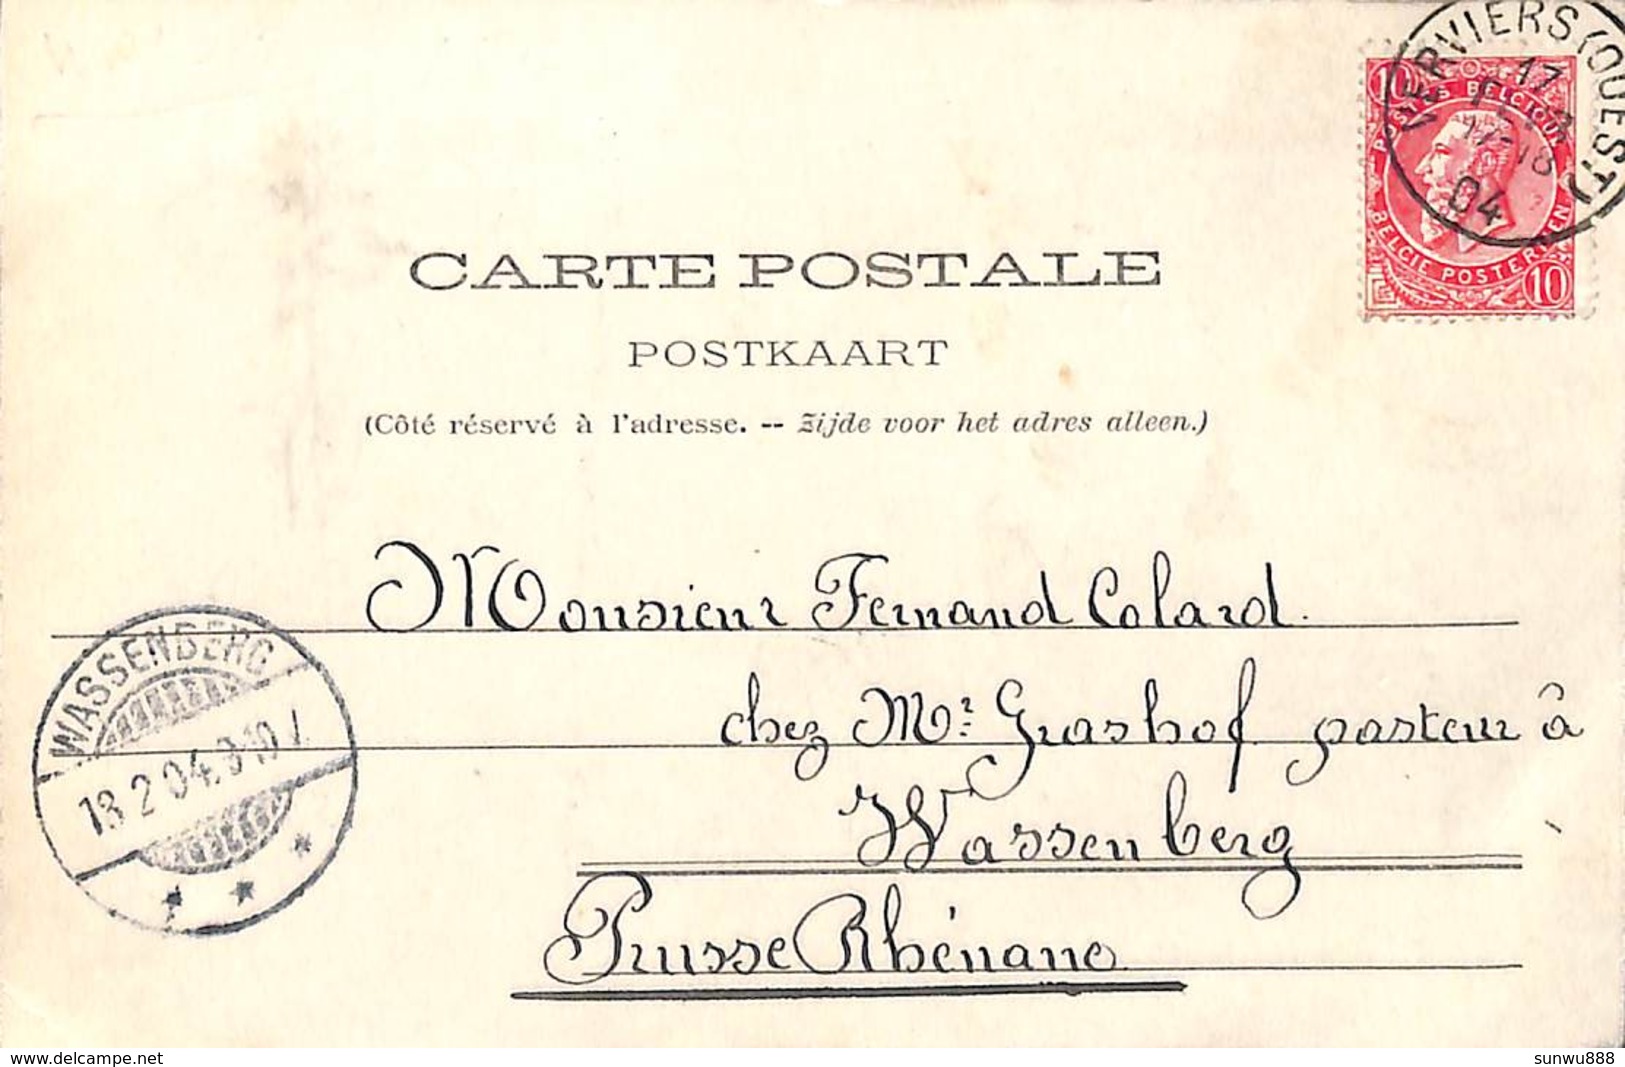 VERVIERS (OUEST)
17
FEVR
17-18
04
10
POSTES BELGIQUE
BELGIE POSTERIJEN
10
CARTE POSTALE
POSTKAART
(Côté réservé à l'adresse. -- Zijde voor het adres alleen.)
Monsieur Fernand Colard.
chez Mr: Grashof pasteur à
Wassenberg
Prusse Rhénane
WASSENBERG
18 2 04.
delcampe.net
sunwu888